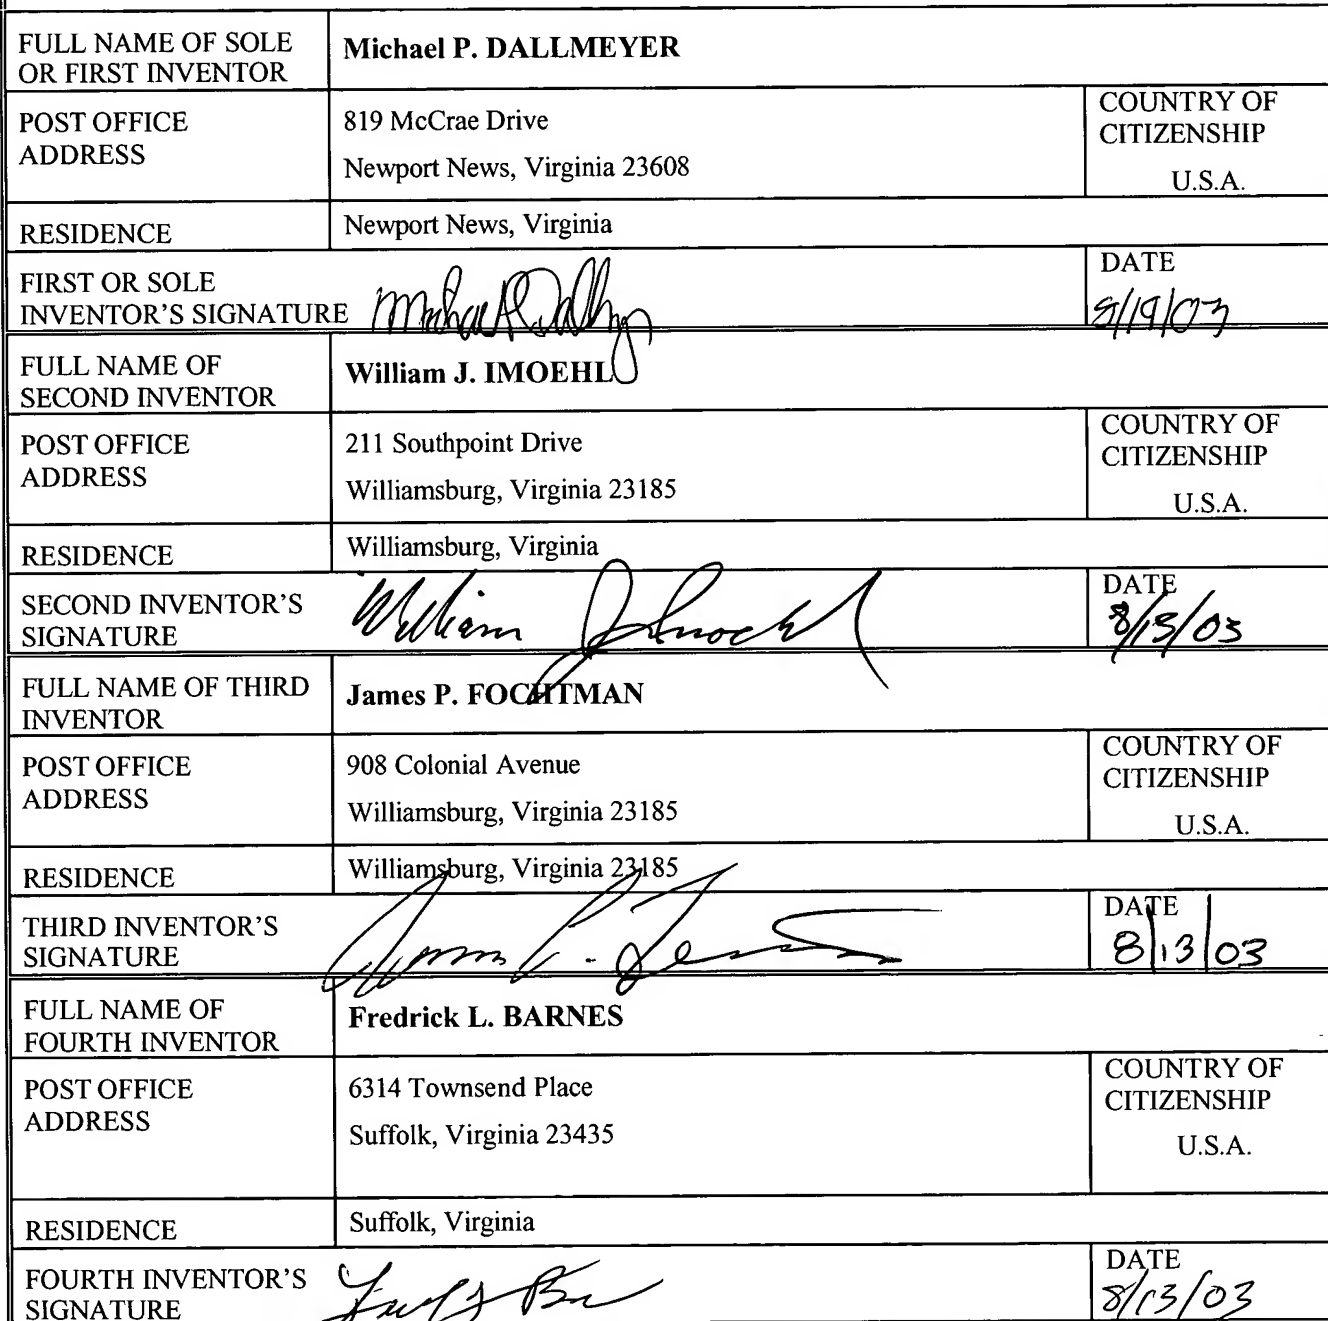 FULL NAME OF SOLE
OR FIRST INVENTOR
Michael P. DALLMEYER
POST OFFICE
ADDRESS
819 McCrae Drive
Newport News, Virginia 23608
COUNTRY OF
CITIZENSHIP
U.S.A.
RESIDENCE
Newport News, Virginia
FIRST OR SOLE
INVENTOR'S SIGNATURE
DATE
8/19/03
FULL NAME OF
SECOND INVENTOR
William J. IMOEHL
POST OFFICE
ADDRESS
211 Southpoint Drive
Williamsburg, Virginia 23185
COUNTRY OF
CITIZENSHIP
U.S.A.
RESIDENCE
Williamsburg, Virginia
SECOND INVENTOR'S
SIGNATURE
William
DATE
FULL NAME OF THIRD
INVENTOR
James P. FOCHTMAN
POST OFFICE
ADDRESS
908 Colonial Avenue
Williamsburg, Virginia 23185
COUNTRY OF
CITIZENSHIP
U.S.A.
RESIDENCE
Williamsburg, Virginia 23185
THIRD INVENTOR'S
SIGNATURE
DATE
8/13/03
FULL NAME OF
FOURTH INVENTOR
Fredrick L. BARNES
POST OFFICE
ADDRESS
6314 Townsend Place
Suffolk, Virginia 23435
COUNTRY OF
CITIZENSHIP
U.S.A.
RESIDENCE
Suffolk, Virginia
FOURTH INVENTOR'S
SIGNATURE
DATE
8/13/03